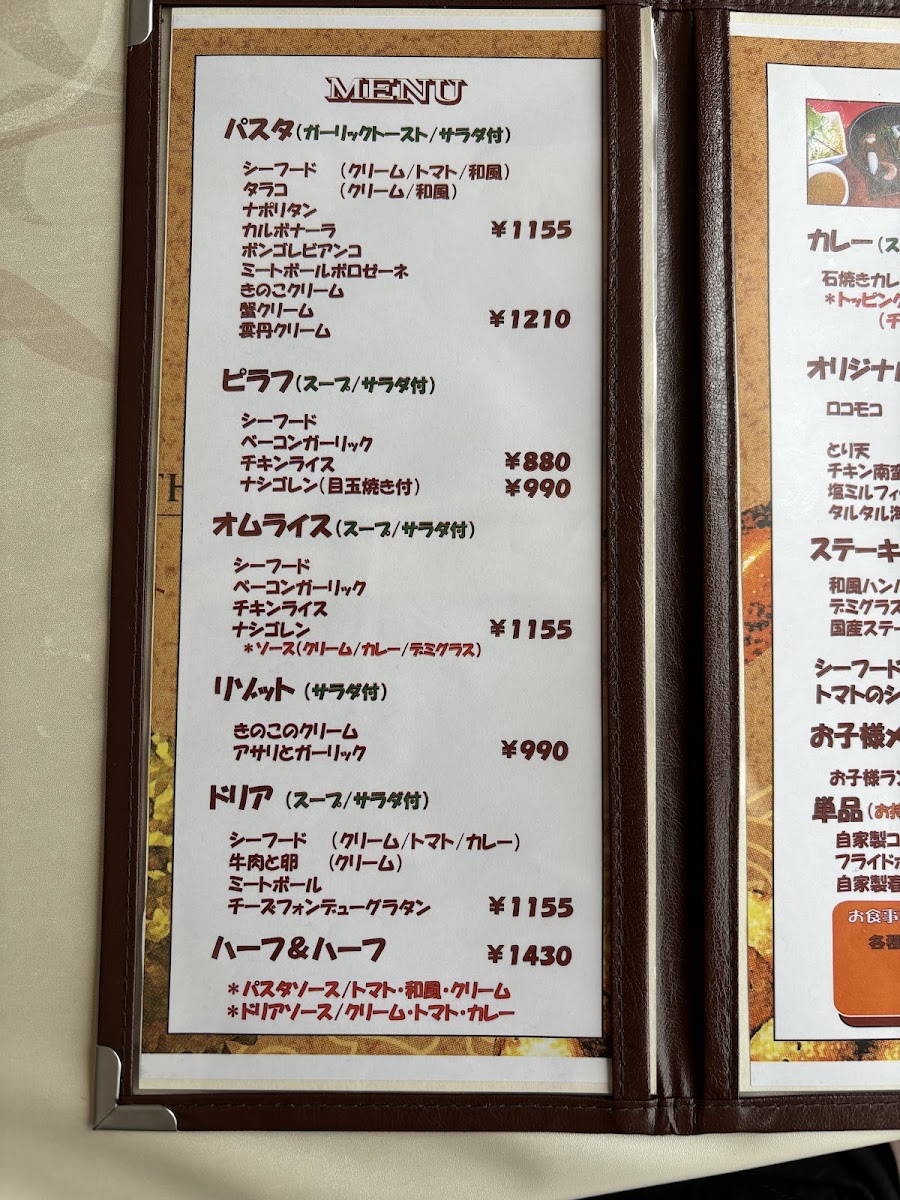 MENU
パスタ(ガーリックトースト/サラダ付)
シーフード (クリーム/トマト/和風)
タラコ (クリーム/和風)
ナポリタン
カルボナーラ ¥1155
ボンゴレビアンコ
ミートボールボロゼーネ
きのこクリーム
蟹クリーム ¥1210
雲丹クリーム
ピラフ(スープ/サラダ付)
シーフード
ベーコンガーリック
チキンライス ¥880
ナシゴレン(目玉焼き付) ¥990
オムライス(スープ/サラダ付)
シーフード
ベーコンガーリック
チキンライス
ナシゴレン ¥1155
*ソース(クリーム/カレー/デミグラス)
リゾット (サラダ付)
きのこのクリーム
アサリとガーリック ¥990
ドリア (スープ/サラダ付)
シーフード (クリーム/トマト/カレー)
牛肉と卵 (クリーム)
ミートボール
チーズフォンデューグラタン ¥1155
ハーフ&ハーフ ¥1430
*パスタソース/トマト・和風・クリーム
*ドリアソース/クリーム・トマト・カレー
カレー(ス
石焼きカレ
*トッピング
(チ
オリジナル
ロコモコ
とり天
チキン南蛮
塩ミルフィ
タルタル海
ステーキ
和風ハンバ
デミグラス
国産ステー
シーフード
トマトのシ
お子様メ
お子様ラン
単品(お持
自家製コ
フライドポ
自家製春
お食事
各種